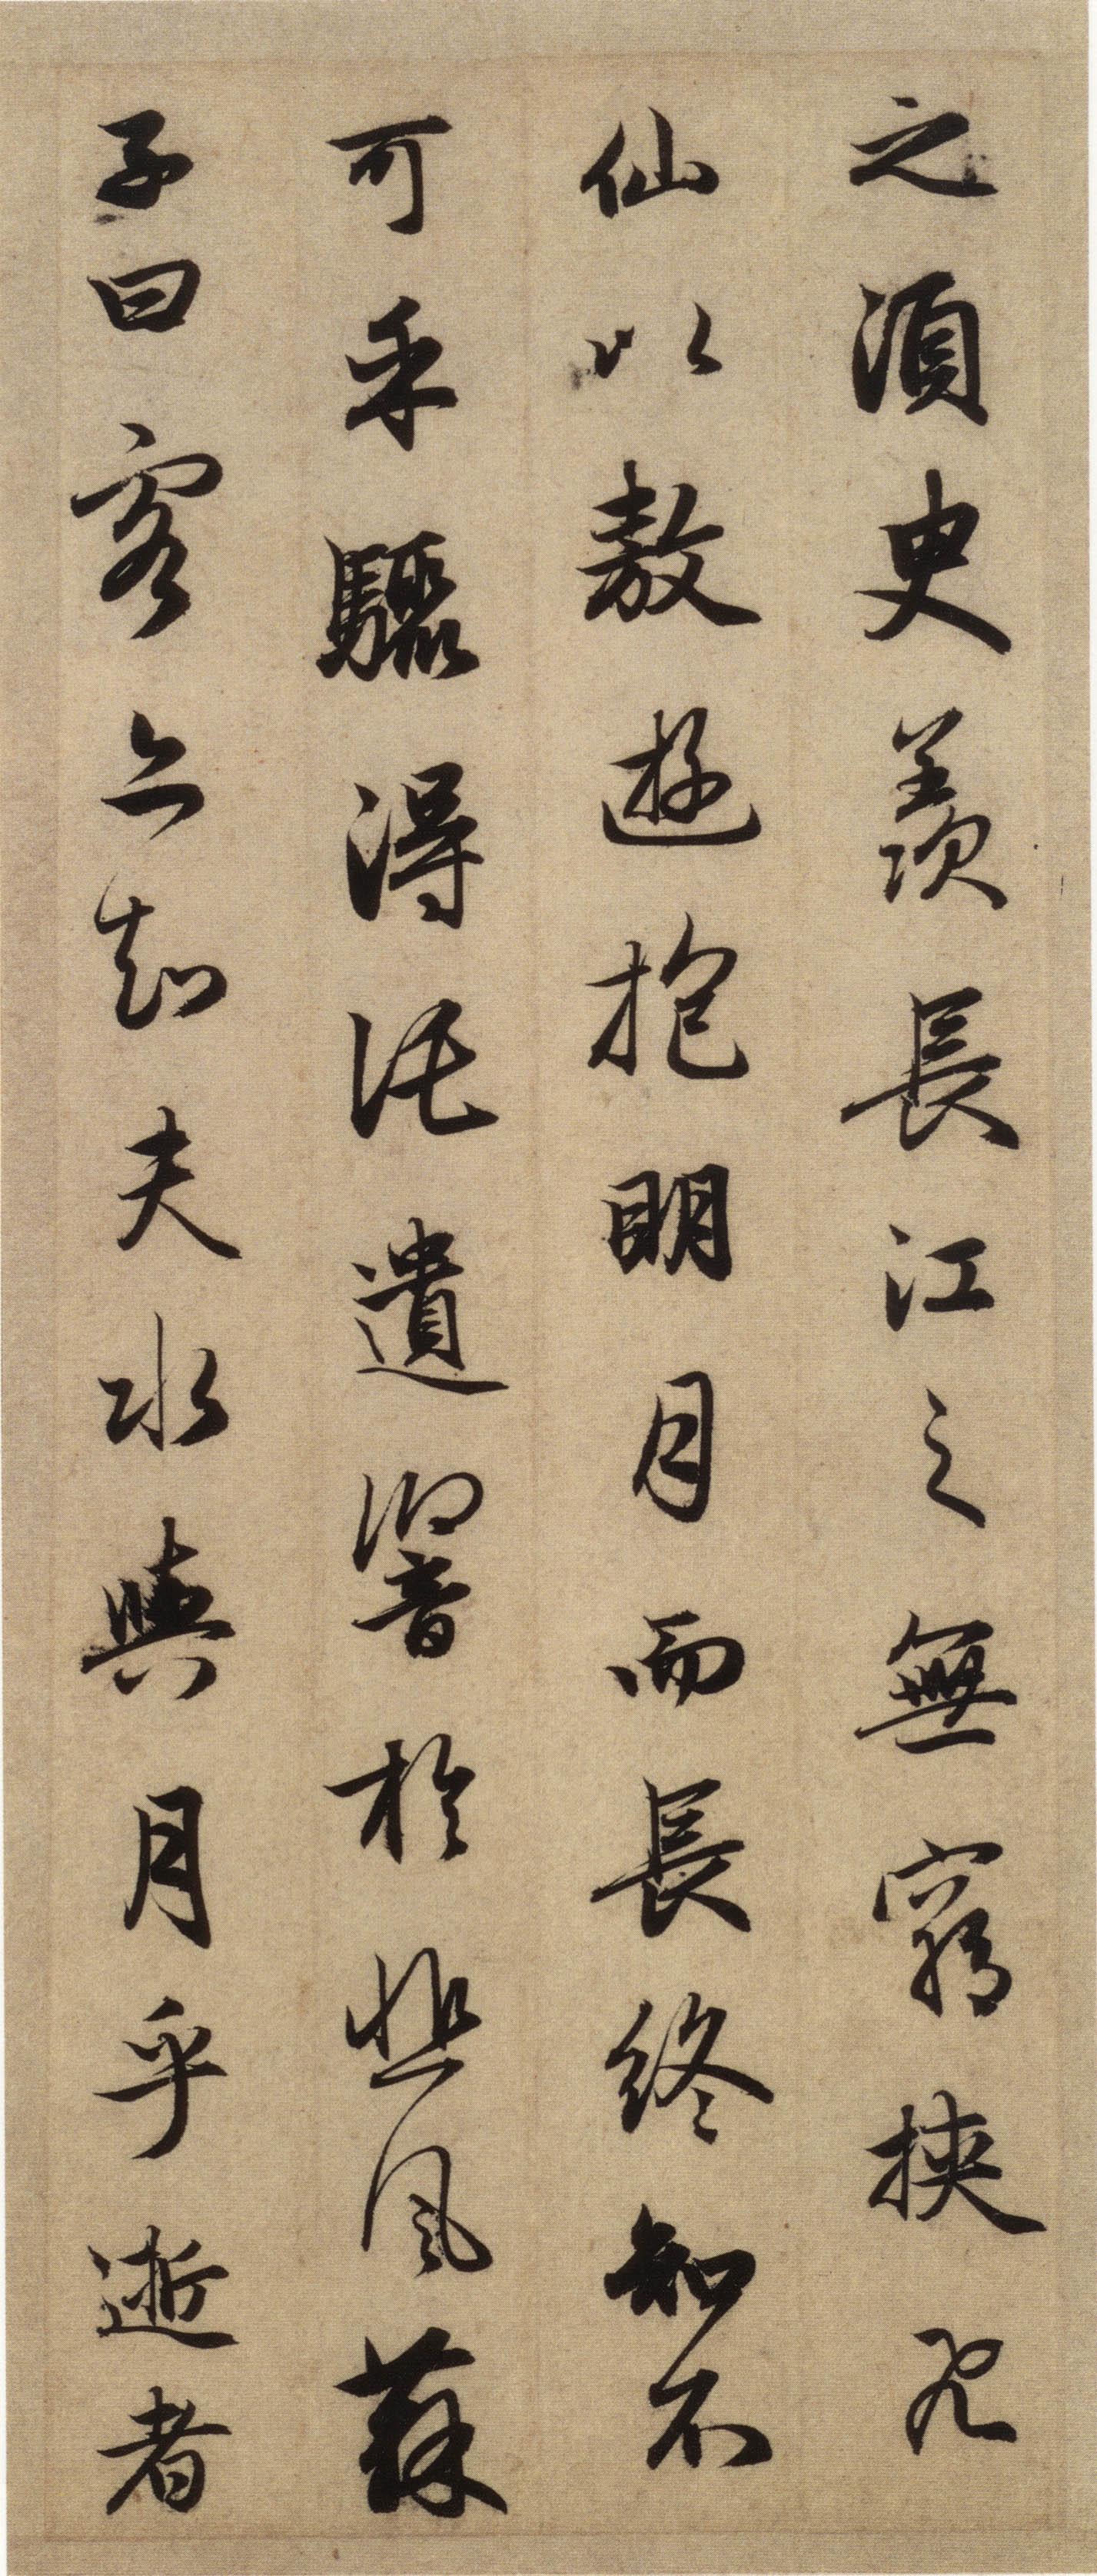 之須臾羨長江之無窮挾飛
仙以遨遊抱明月而長終知不
可乎驟得託遺響於悲風蘇
子曰客亦知夫水與月乎逝者